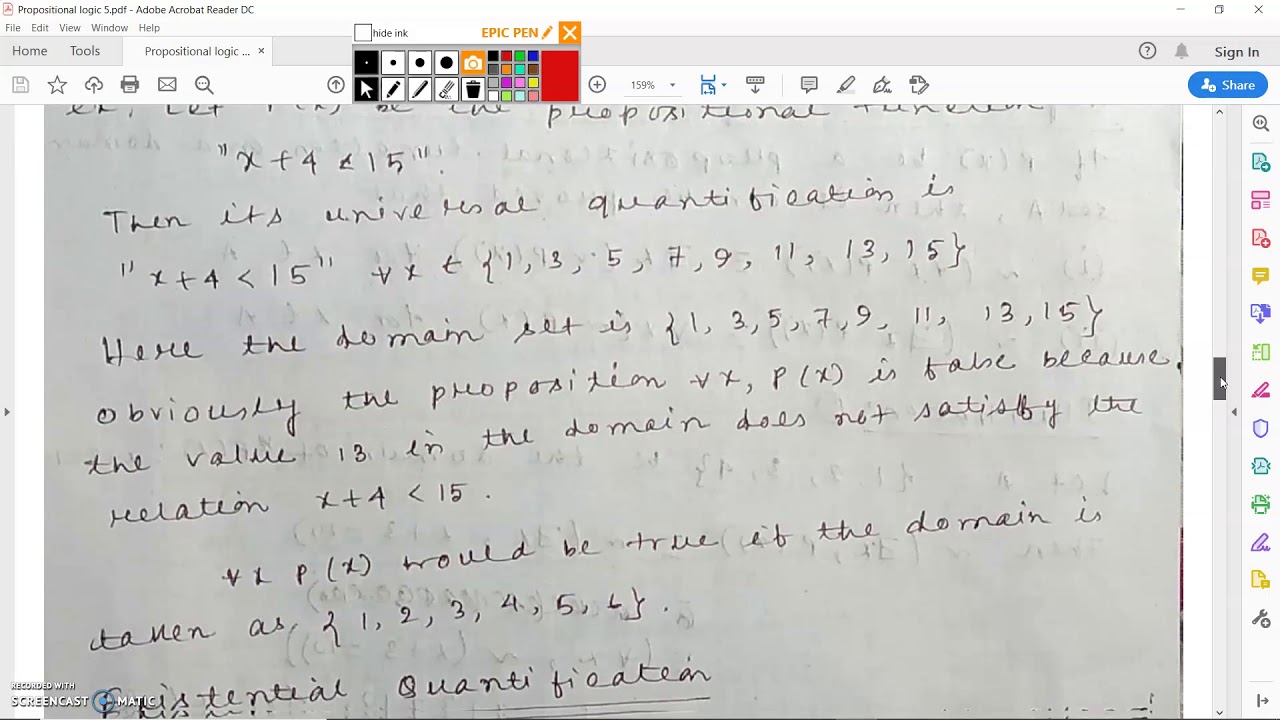 Propositional logic 5.pdf - Adobe Acrobat Reader DC
File Edit View Window Help
hide ink EPIC PEN
Home Tools Propositional logic ... × Sign In
159% Share
ex, Let P(x) be the propositional function
"x+4 < 15".
Then its universal quantification is
"x+4 < 15" ∀x ∈ {1, 13, 5, 7, 9, 11, 13, 15}
Here the domain set is {1, 3, 5, 7, 9, 11, 13, 15}
obviously the proposition ∀x, P(x) is false because
the value 13 in the domain does not satisfy the
relation x+4 < 15.
∀x P(x) would be true if the domain is
taken as, {1, 2, 3, 4, 5, 6}.
Existential Quantification
RECORDED WITH
SCREENCAST MATIC